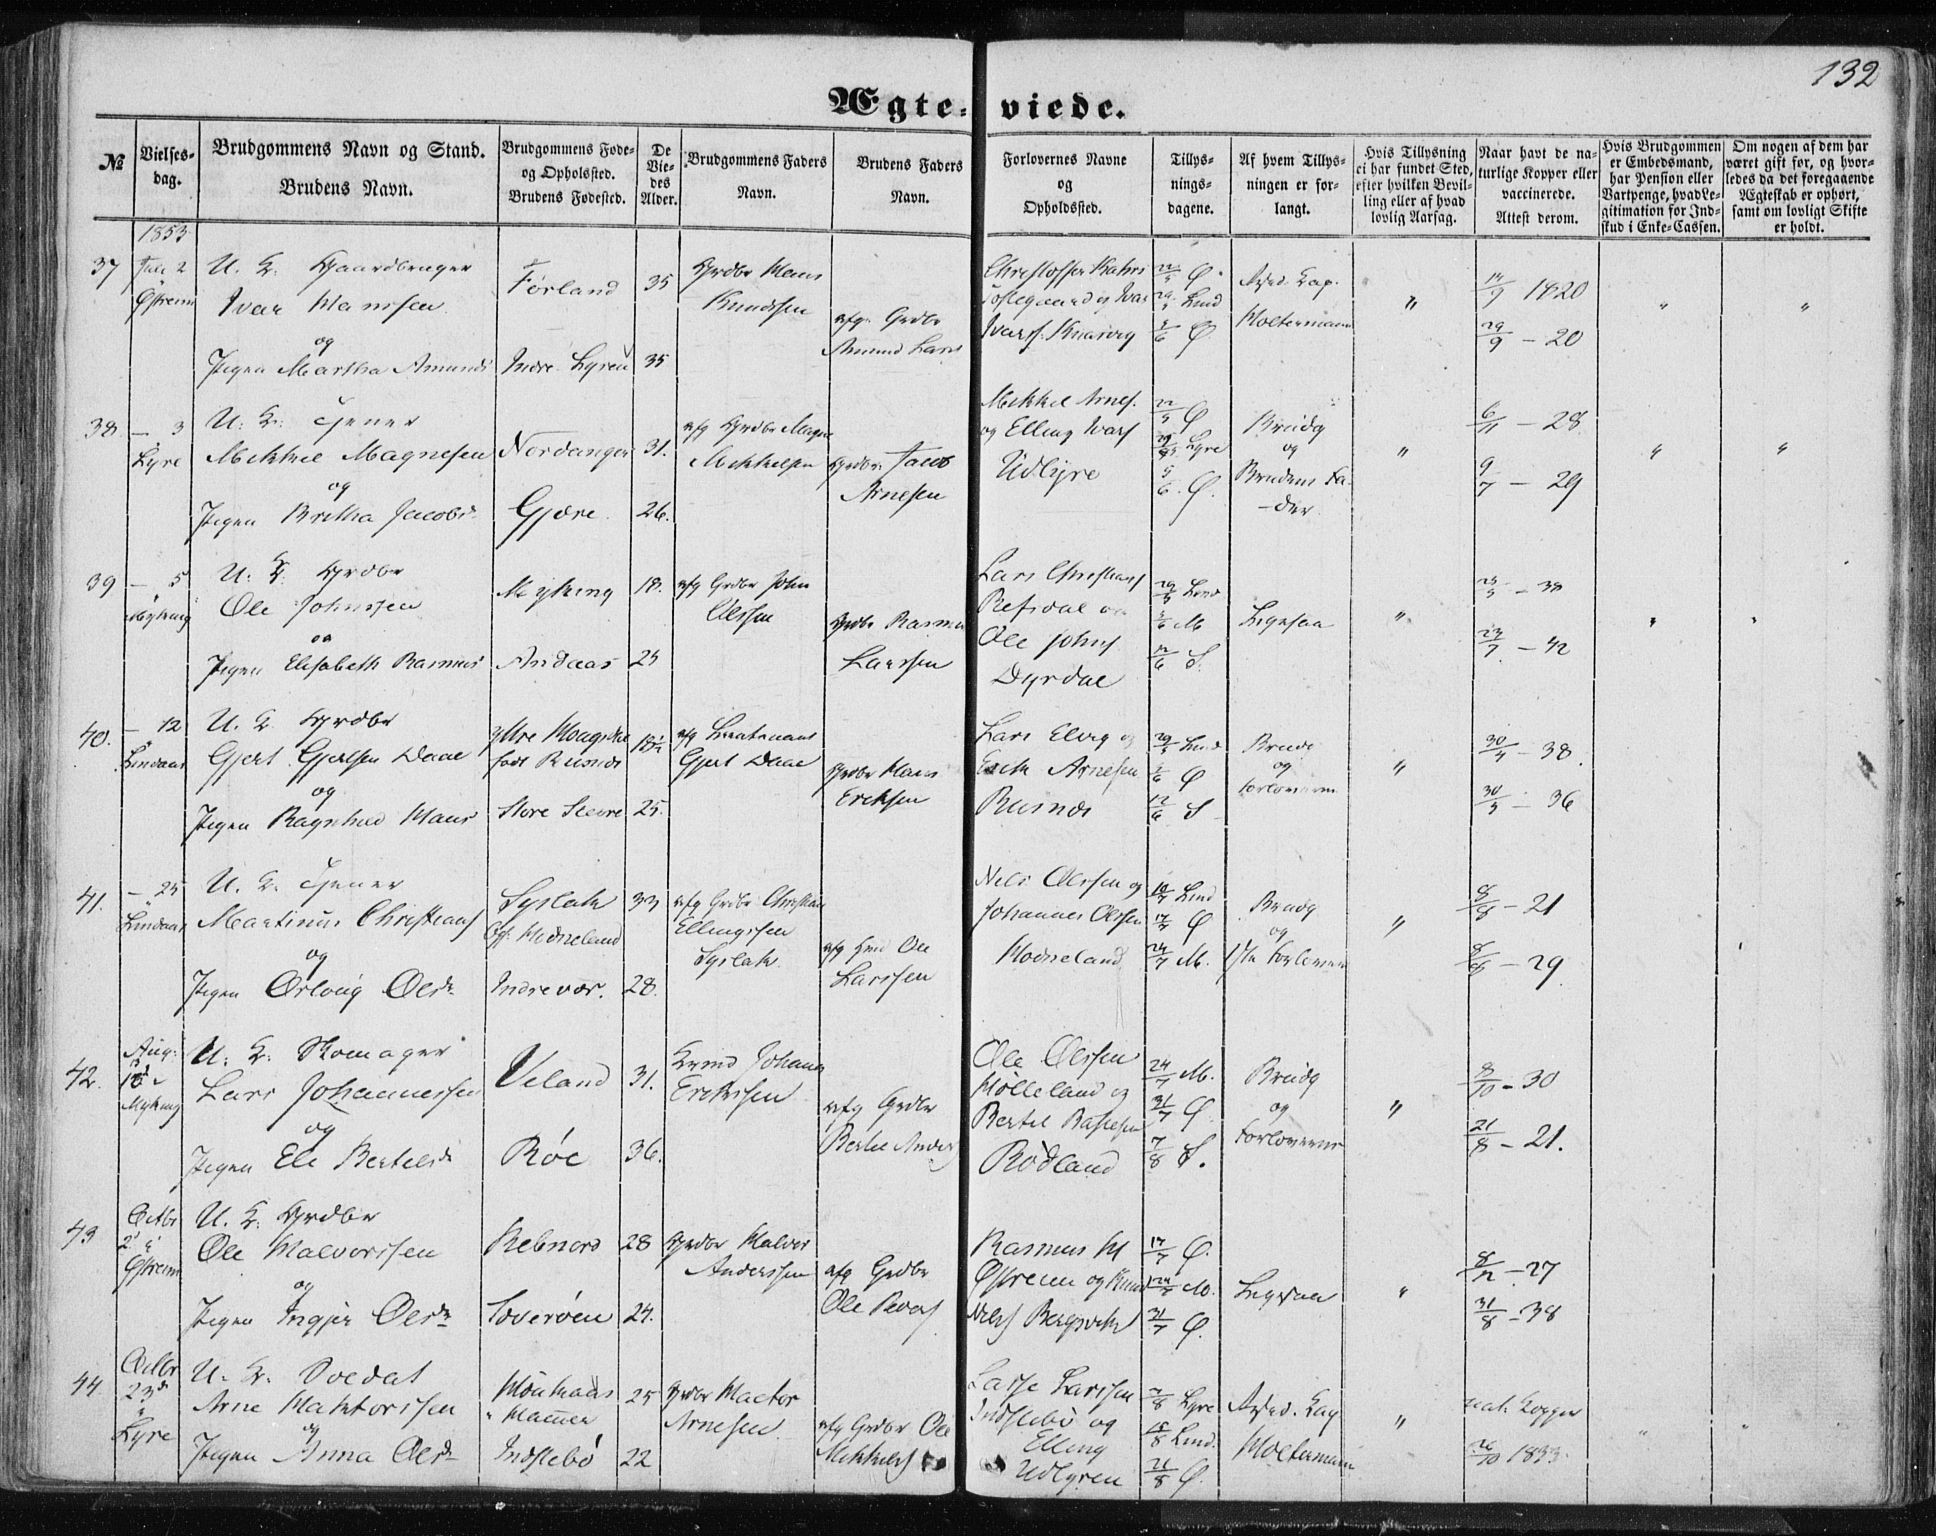 132
Ægte-viede.
№
Vielses-dag.
Brudgommens Navn og Stand.
Brudens Navn.
Brudgommens Føde- og Opholdsted.
Brudens Fødested.
De Vie-des Alder.
Brudgommens Faders Navn.
Brudens Faders Navn.
Forlovernes Navne og Opholdssted.
Tillys-nings-dagene.
Af hvem Tillys-ningen er for-langt.
Hvis Tillysning ei har fundet Sted, efter hvilken Bevil-ling eller af hvad lovlig Aarsag.
Naar havt de na-turlige Kopper eller vaccinerede. Attest derom.
Hvis Brudgommen er Embedsmand, har Pension eller Vartpenge, hvad Le-gitimation for Ind-skud i Enke-Cassen.
Om nogen af dem har været gift før, og hvor-ledes da det foregaaende Ægteskab er ophørt, samt om lovligt Skifte er holdt.
1853
37 Juli 2 Østrem
U. K. Gaardbruger
Ivar Hanssen
og
Pigen Martha Amunds
Førland 35
Indre Lyren 35
Grdbr Hans Knudssen
afg. Grdbr Amund Lars
Christoffer
Ivars. Knarvig
22/5 Ø.
29/5 Lind
5/6 Ø
Holtermann
"
14/9 1820
29/9 – 20
" "
38. – 3 Lyre
U. K. Tjener
Mikkel Magnesen
og
Pigen Britha Jacobsd.
Nordanger 31.
Gjære 26.
afg Grdbr Magne Mikkelsen
Grdbr. Jacob Arnesen
Mikkel Arnes.
og Elling Ivars
Udlyre
22/5 Ø
29/5 Lyre
5/6. Ø.
Brudg og Brudens Fa-der.
"
6/11 – 28
9/7 – 29
" "
39 – 5 Myking
U. K. Grdbr
Ole Johnssen
og
Pigen Elisabeth Rasmus
Myking 18.
Andaas 25
afg Grdbr John Olssen
Grdbr Rasmus Larssen
Lars Christians
Refsdal og
Ole Johns
Dyrdal
29/5 Lind
5/6 M
12/6 S.
Ligesaa
"
– 38
23/7 – 42
" "
40. – 12 Lindaas
U. K. Grdbr
Gjert Gjertsen Daae
og
Pigen Ragnhild Hans
født Risnæs
25.
afg Lieutenant Gjert Daae
Grdbr Hans Eriksen
Lars Elvig og
Erik Arnesen
Risnæs
29/5 Lind
5/6 Ø
12/6 S
Brudg og Forloverne
"
30/4 – 38.
30/5 – 36
41. – 25 Lindaas
U. K. Tjener
Martinus Christians
og
Pigen Olsdr
Syslak 33
28.
afg Grdbr Christian Ellingssen Syslak
afg Ole Larssen
Nils Olssen og
Johannes Olssen
Hodneland
10/7 Lind
17/7 Ø
24/7 M.
Brudg og 1ste Forlover
"
8/8 – 21
– 29
42. Aug. Myking
U. K. Skomager
Lars Johannessen
og
Pigen Eli Bertelsd.
Veland 31.
Røe 36.
Johannes Erikssen
afg Grdbr Bertel Anders
Ole Olssen
Mølleland og
Bertel
Rødland
24/7 M.
31/7 Ø.
7/8 S.
Brudg og Forloverne
"
8/10 – 30
21/8 – 21.
43 Octbr 2d Østrem
U. K. Grdbr
Ole Halvorssen
og
Pigen Ingjer Olsdr
Rebnord 28
24.
Grdbr Halvor Anderssen
afg Grdbr Ole Peders
Rasmus H
Østrem og Knud
Nils Bergsvik
17/7 Ø.
24/7 M.
31/7 Ø.
Ligesaa
"
8/12 – 27
31/8 – 38
44 Octbr 23d Lyre
U. K. Soldat
Arne Haktorssen
og
Pigen Anna Olsdr
25
Indslebø 22
Grdbr Hactor Arnesen
afg Grdbr Ole Mikkels
Lasse Larssen
Indslebø og
Elling
Udlyren
7/8 Lyre
Lind.
21/8 Ø.
Holtermann
"
nat. Kopper
26/10 1833
" "